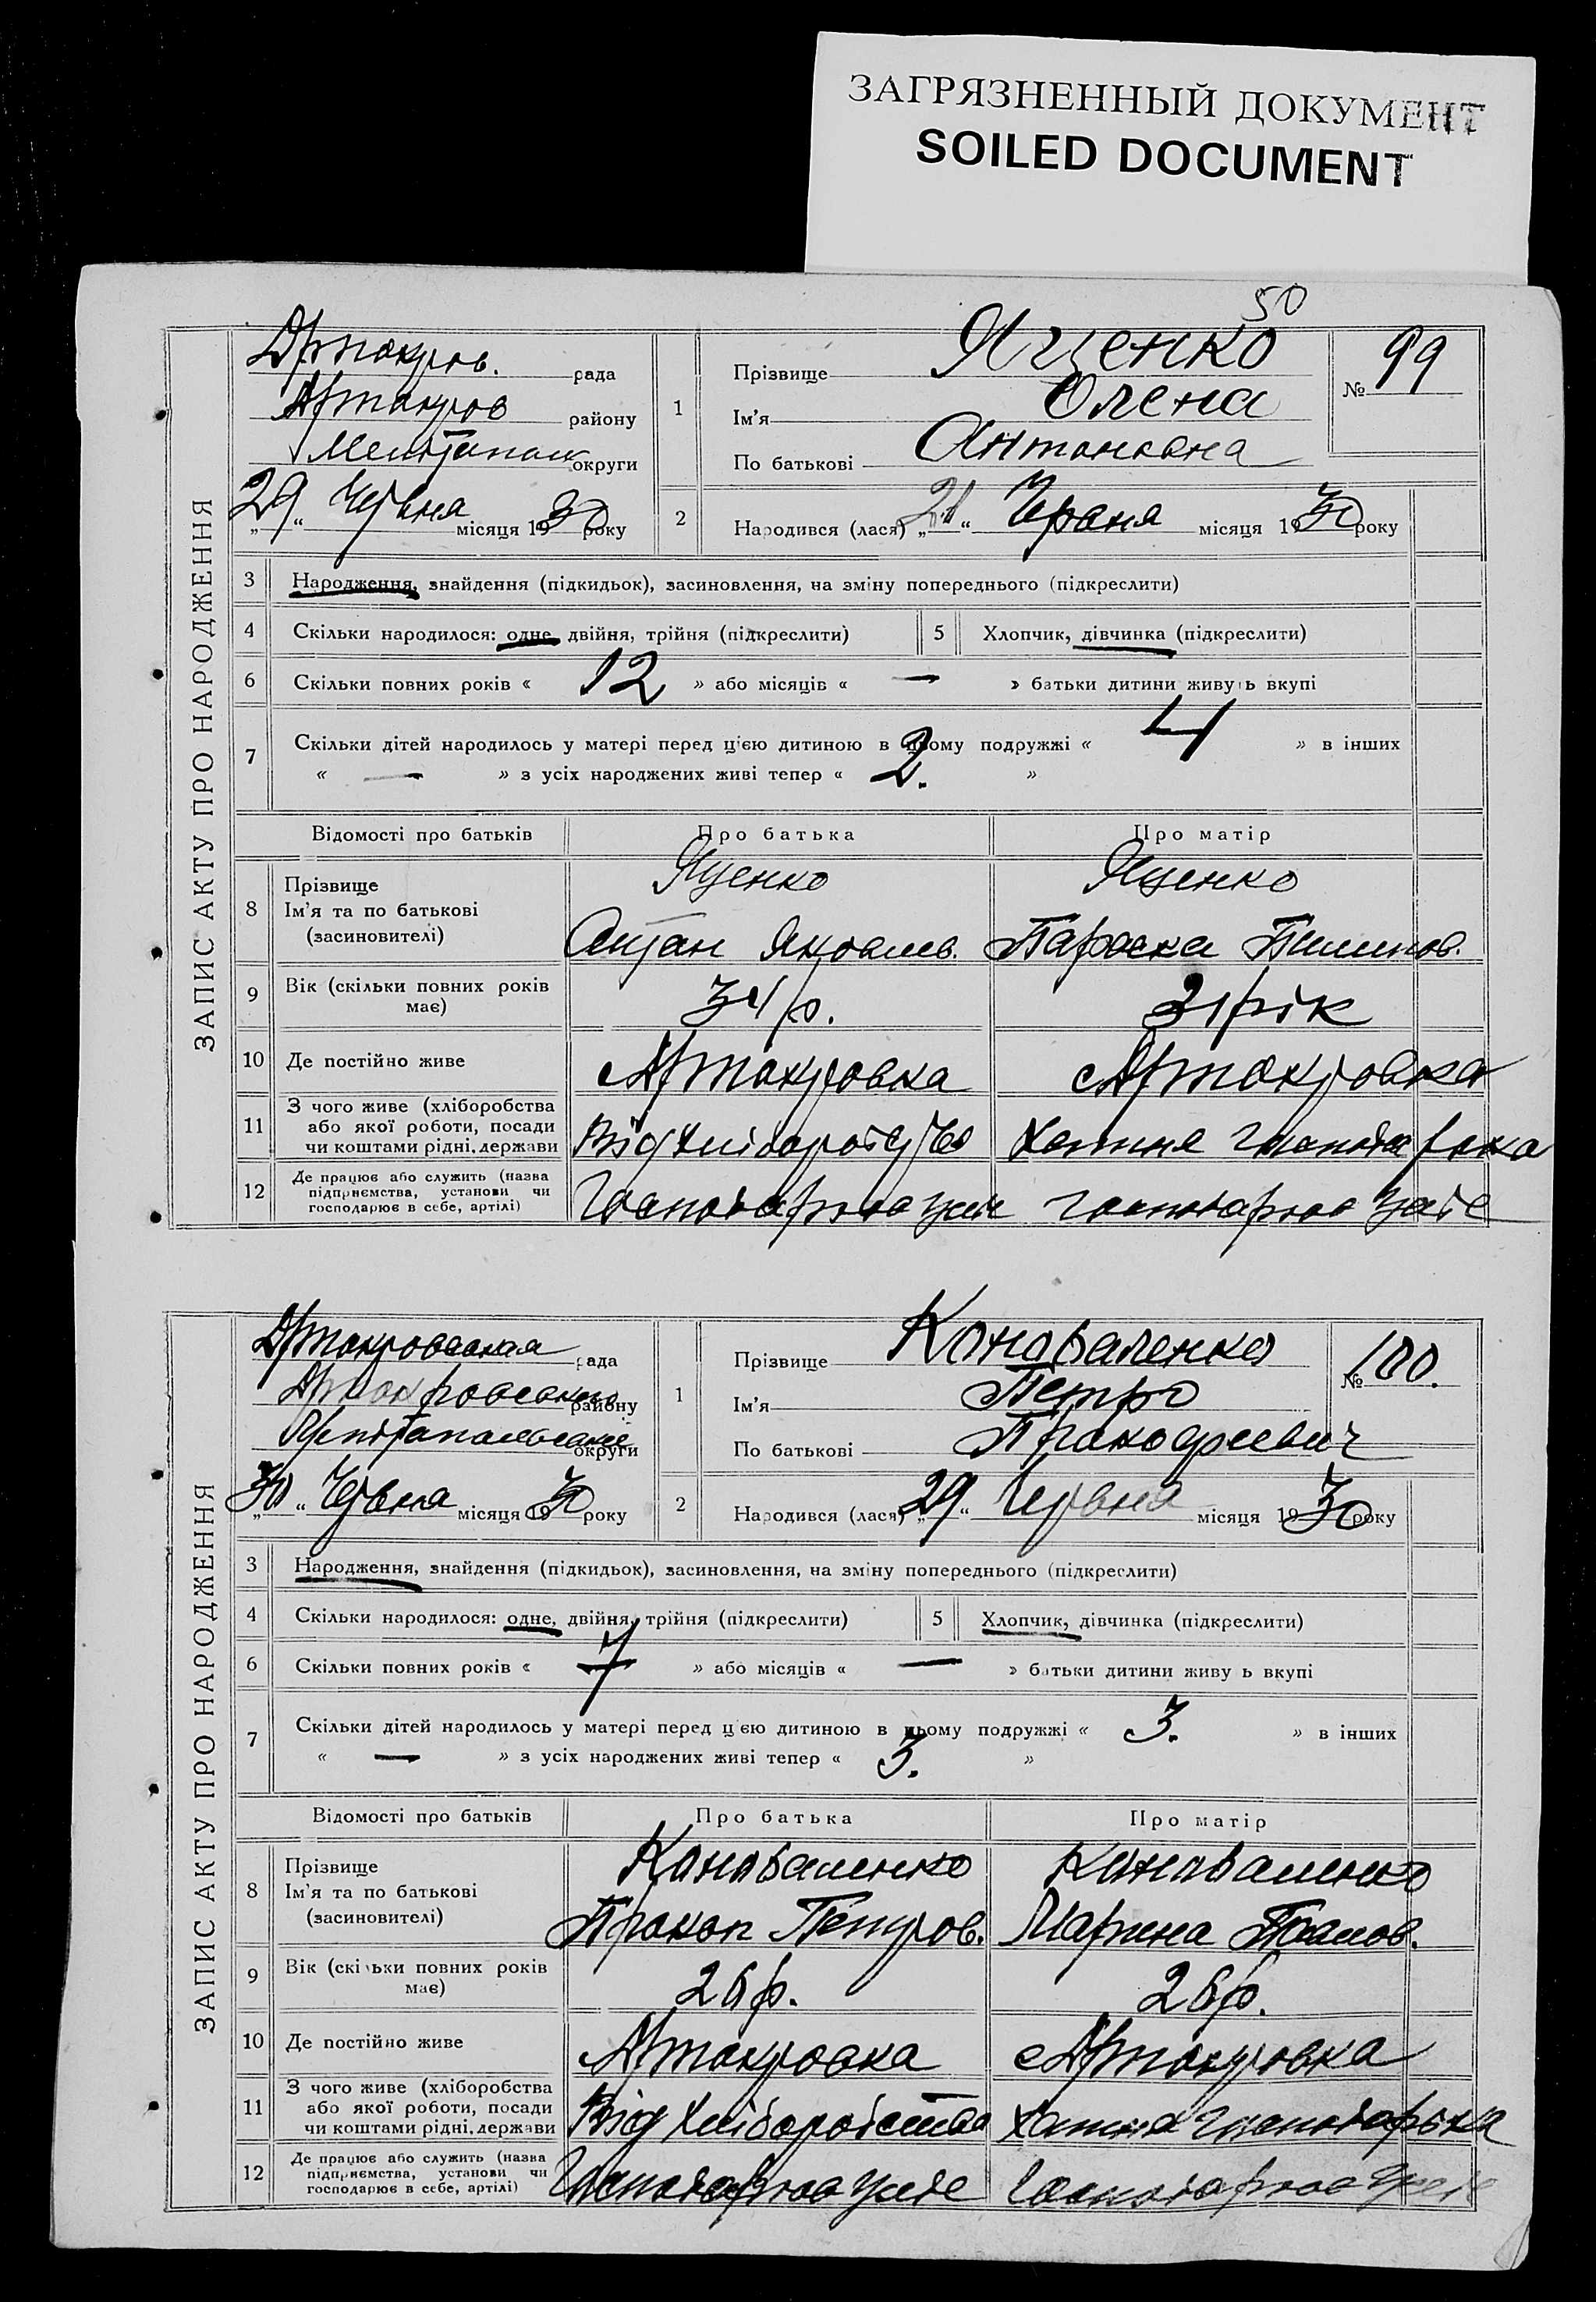 ЗАГРЯЗНЕННЫЙ ДОКУМЕНТ
SOILED DOCUMENT
50
ЗАПИС АКТУ ПРО НАРОДЖЕННЯ
Артокров. рада
Артокров району
Мелітопол округи
„29“ Червня місяця 1930 року
1 Прізвище Яценко
Ім'я Олена
По батькові Антоновна
№ 99
2 Народився (лася) „21“ Червня місяця 1930 року
3 Народження, знайдення (підкидьок), засиновлення, на зміну попереднього (підкреслити)
4 Скільки народилося: одне, двійня, трійня (підкреслити) 5 Хлопчик, дівчинка (підкреслити)
6 Скільки повних років « 12 » або місяців « — » батьки дитини живуть вкупі
7 Скільки дітей народилось у матері перед цією дитиною в цьому подружжі « 4 » в інших
« — » з усіх народжених живі тепер « 2. »
Відомості про батьків Про батька Про матір
8 Прізвище Яценко Яценко
Ім'я та по батькові
(засиновителі) Антон Яковлев. Параска
9 Вік (скільки повних років
має) 34 р. 31 рік
10 Де постійно живе Артокровка Артокровка
11 З чого живе (хліборобства
або якої роботи, посади
чи коштами рідні, держави Від хліборобства Хатня господарька
12 Де працює або служить (назва
підприємства, установи чи
господарює в себе, артілі) Господарює у себе господарює у себе
ЗАПИС АКТУ ПРО НАРОДЖЕННЯ
Артокровская рада
Артокровського району
округи
„30“ Червня місяця 1930 року
1 Прізвище Коноваленко
Ім'я Петро
По батькові Прокофиевич
№ 100.
2 Народився (лася) „29“ Червня місяця 1930 року
3 Народження, знайдення (підкидьок), засиновлення, на зміну попереднього (підкреслити)
4 Скільки народилося: одне, двійня, трійня (підкреслити) 5 Хлопчик, дівчинка (підкреслити)
6 Скільки повних років « 7 » або місяців « — » батьки дитини живу ь вкупі
7 Скільки дітей народилось у матері перед цією дитиною в цьому подружжі « 3. » в інших
« — » з усіх народжених живі тепер « 3. »
Відомості про батьків Про батька Про матір
8 Прізвище Коноваленко Коноваленко
Ім'я та по батькові
(засиновителі) Прокоп Петров. Марина
9 Вік (скільки повних років
має) 26 р. 26 р.
10 Де постійно живе Артокровка Артокровка
11 З чого живе (хліборобства
або якої роботи, посади
чи коштами рідні, держави Від хліборобства Хатня господарька
12 Де працює або служить (назва
підприємства, установи чи
господарює в себе, артілі) Господарює у себе Господарює у себе